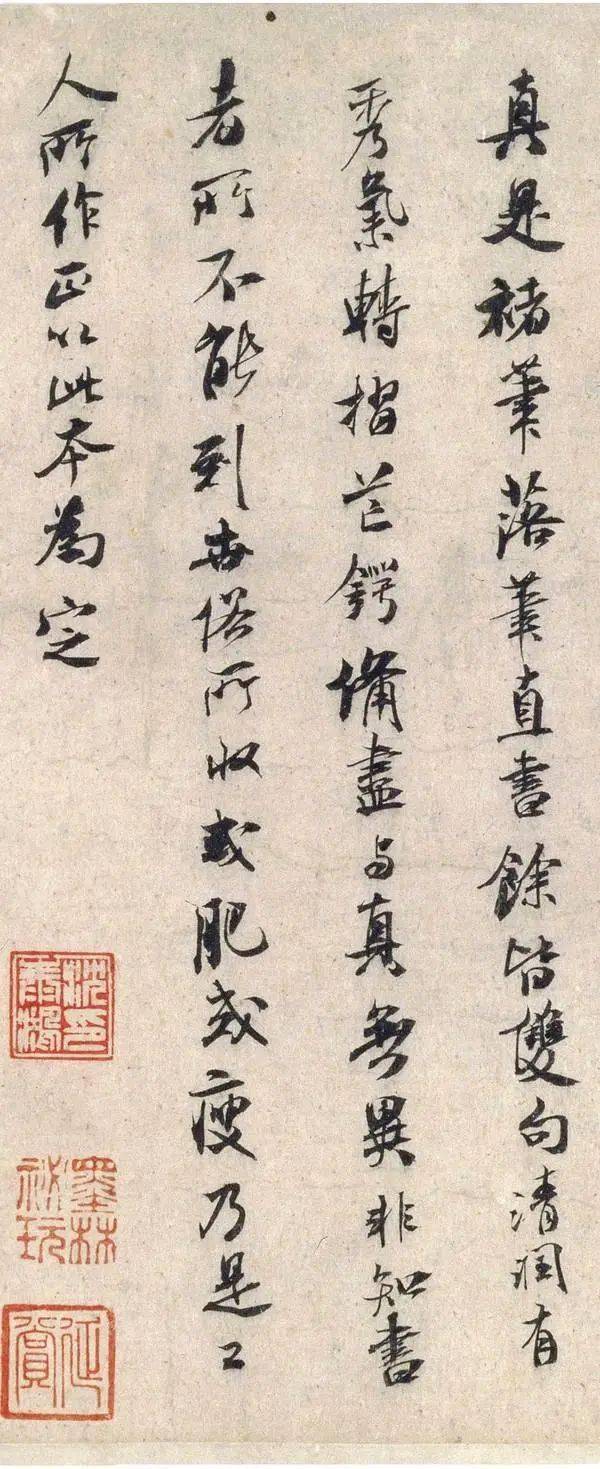 真是褚筆落筆直書餘皆雙句清潤有
秀氣轉摺芒鍔備盡与真無異非知書
者所不能到世俗所收或肥或瘦乃是工
人所作正以此本為定
墨林
祕玩
延賞